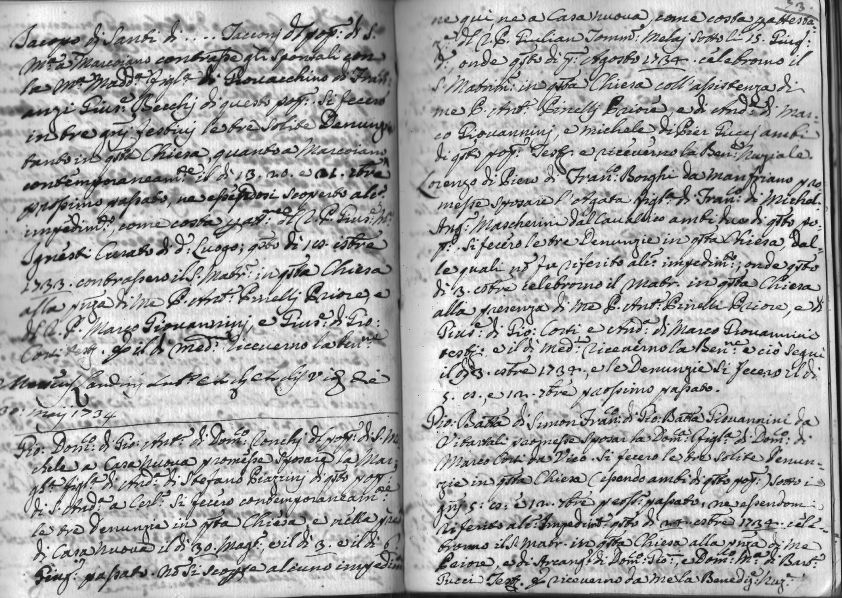 Jacopo di Santi di ..... Jacconj d: pop: di S.
M: a Marcoiano contrasse gli sponsali con
la M: Madd: figl: di Giovacchino di Fran:
anzi Gius: Becchj di questo pop: Si fecero
in tre gnj festivi le tre solite Denunzie
tanto in qsta Chiesa quanto a Marcoiano
contemporaneam:e il dì 13. 20. e 21. xbre
prossimo passato, ne essendosi scoperto alc:
impedim:, come costa p att: d: R. P. Gius:
Curato di d: Luogo; qsto dì 10. 8bre
1733. contrassero il S. Matr: in qsta Chiesa
alla pnza di me P. Ant: Pinellj Priore, e
di R. P. Marco Giovanninj, e Gius: di Gio:
Corti Testj. e il dì med: riceverno la Ben:ne
die
30. Maij 1734
Gio: Dom:co di Gio: Ant: di Dom:co Conchj d: pop: di S. Mi
chele a Casanuova promesse sposare la Mar:
figl: di And: di Stefano Piazzinj di qsto pop:
di S. And: a Cerl: Si fecero contemporaneam:e
le tre denunzie in qsta Chiesa, e nella
di Casanuova il dì 30. Magg: e il dì 3. e il dì
Giug: passato. Nò si scopse alcuno impedim:
23.
ne qui ne a Casanuova, come costa p attesta:
d: R. P. Giulian Tomm: Melaj Sotto lì 15. Giug:
onde qsto dì Agosto 1734. celebrono il
S. Matrim: in qsta Chiesa coll'assistenza di
me P. Ant: Pinellj Priore, e di And: di Mar:
co Giovanninj, e Michele di Pier Puccj ambi
di qsto pop: Testj e riceverno la Ben: Nuziale
Lorenzo di Piero di Fran: Borghi da Manfriano pro
messe sposare l'Agata figl: di Fran: di Michel
Ang: Mascherini dall'Avellico ambi due di qsto po:
p: Si fecero le tre Denunzie in qsta Chiesa, dal:
le quali nò fu riferito alc: impedim:; onde qsto
dì 3. 8bre celebrono il Matr: in qsta Chiesa
alla presenza di me P. Ant: Pinelli Priore, e di
Gius: di Gio: Corti e And: di Marco Giovannini
testj. e il dì med: riceverno la Ben:ne e ciò seguì
il dì 3. 8bre 1734. e le Denunzie si fecero il dì
5. 8. e 12. 7bre prossimo passato.
Gio: Batta di Simon Fran: di Gio: Batta Giovannini da
Vitartali promesse sposar la Dom:ca figl: di Dom: di
Marco Corti da Vico. Si fecero le tre solite Denun:
zie in qsta Chiesa (essendo ambi di qsto pop:) sotto i
gnj 5. 8. e 12. 7bre pross: passato, ne essendomi
riferito alc: Impedim: qsto dì 8bre 1734. cele
brono il S. Matr: in qsta Chiesa alla pnza di me
Priore, e di Arcang: di Dom:co Gio: e Dom:co M: di Bar:
Pucci Testj. e riceverno da me la Benediz: Nuz: